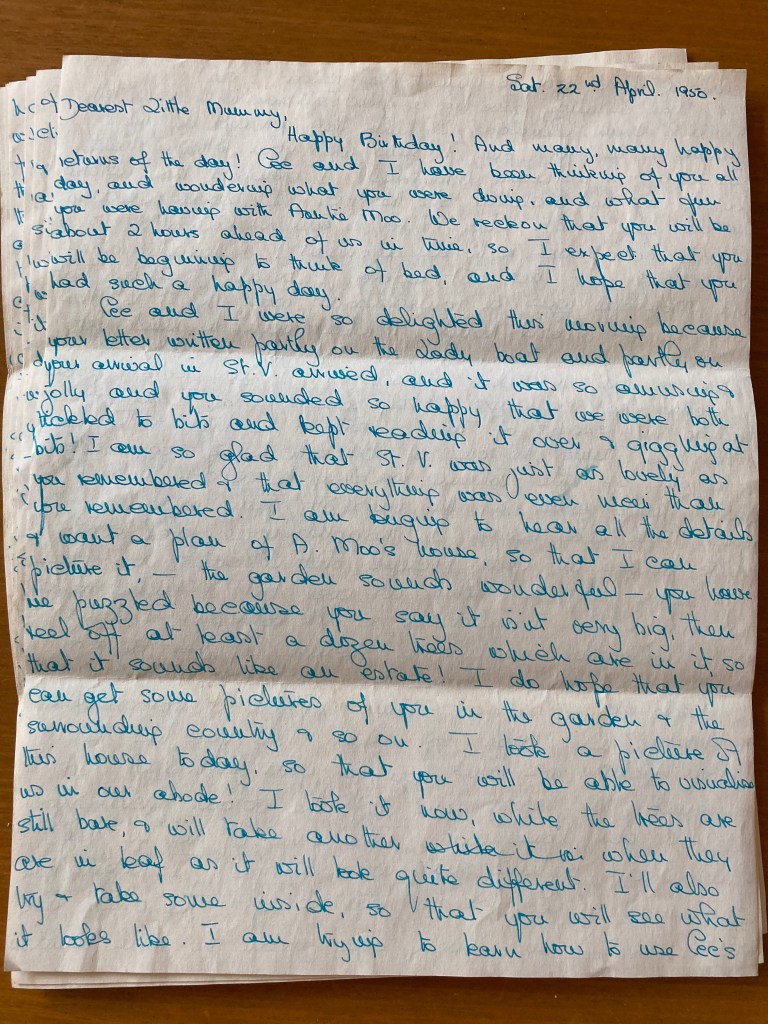 Sat. 22nd April. 1950.
Dearest Little Mummy,
Happy Birthday! And many, many happy
returns of the day! Cee and I have been thinking of you all
day, and wondering what you were doing, and what fun
you were having with Auntie Moo. We reckon that you will be
about 2 hours ahead of us in time, so I expect that you
will be beginning to think of bed, and I hope that you
had such a happy day.
Cee and I were so delighted this morning because
your letter written partly on the Lady boat and partly on
your arrival in St. V. arrived, and it was so amusing &
jolly and you sounded so happy that we were both
tickled to bits and kept reading it over & giggling at
bits! I am so glad that St. V. was just as lovely as
you remembered & that everything was even nicer than
you remembered. I am longing to hear all the details
& want a plan of A. Moo's house, so that I can
picture it, — the garden sounds wonderful — you have
me puzzled because you say it isn't very big, then
reel off at least a dozen trees which are in it, so
that it sounds like an estate! I do hope that you
can get some pictures of you in the garden & the
surrounding country & so on. I took a picture of
this house today, so that you will be able to visualise
us in our abode! I took it now, while the trees are
still bare, & will take another when they
are in leaf as it will look quite different. I'll also
try & take some inside, so that you will see what
it looks like. I am trying to learn how to use Cee's